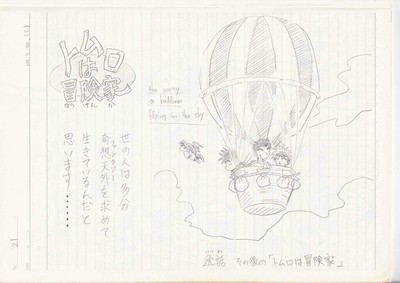 トムロ
は
冒険家
ぼう けん か
a balloon
flying in the sky
世の人は多分
奇想天外を求めて
ファンタジー
生きているんだと
思います……
逸話 その後の「トムロは冒険家」